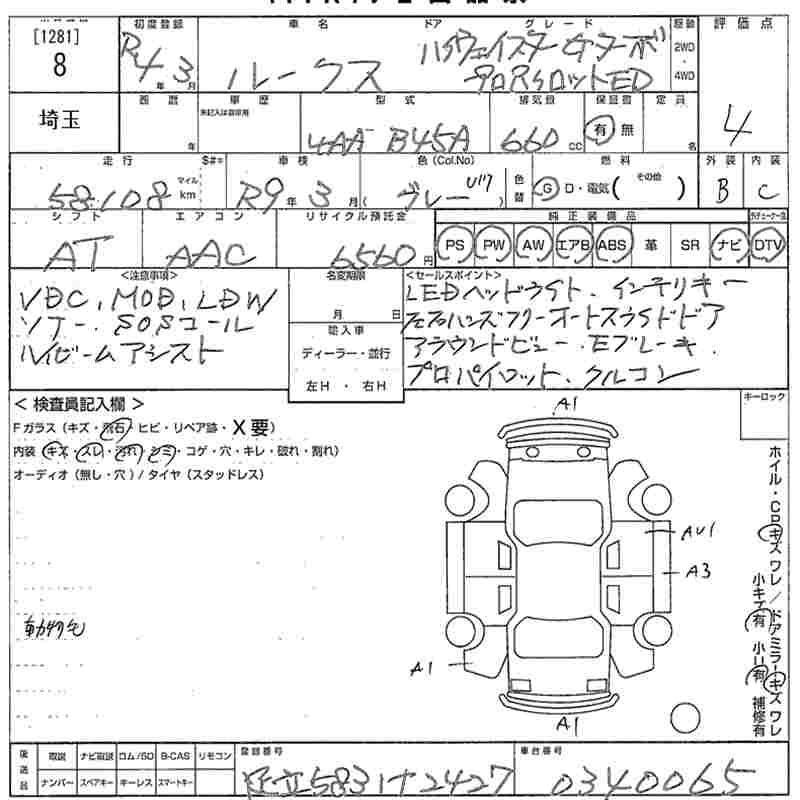 [1281]
8
初度登録
R4年3月
車名
ルークス
ドア
グレード
ハイウェイスターGターボ
プロパイロットED
駆動
2WD
4WD
評価点
4
埼玉
西暦
年
車歴
未記入は自家用
型式
4AA B45A
排気量
660cc
保証書
有 無
定員
名
外装
B
内装
C
走行
58,108
マイル
km
S#※
車検
R9年3月
色(Col.No)
グレー
色替
燃料
G D・電気( その他 )
シフト
AT
エアコン
AAC
リサイクル預託金
6560円
純正装備品
PS PW AW エアB ABS 革 SR ナビ DTV
<注意事項>
VDC, MOD, LDW
ソナー, SOSコール
ハイビームアシスト
名変期限
月 日
輸入車
ディーラー・並行
左H ・ 右H
<セールスポイント>
LEDヘッドライト、インテリキー
左右ハンズフリーオートスライドドア
アラウンドビュー・Eブレーキ、
プロパイロット、クルコン
< 検査員記入欄 >
Fガラス(キズ・飛石・ヒビ・リペア跡・X要)
内装(キズ・スレ・汚れ・シミ・コゲ・穴・キレ・破れ・割れ)
オーディオ(無し・穴)/タイヤ(スタッドレス)
動物毛
キーロック
A1
AU1
A3
A1
A1
ホイル・CPキズ ワレ/ドアミラーキズ ワレ
小キズ有 小U有 補修有
後送品
取説 ナビ取説 ロム/SD B-CAS リモコン
ナンバー スペアキー キーレス スマートキー
登録番号
足立583サ2427
車台番号
0340065